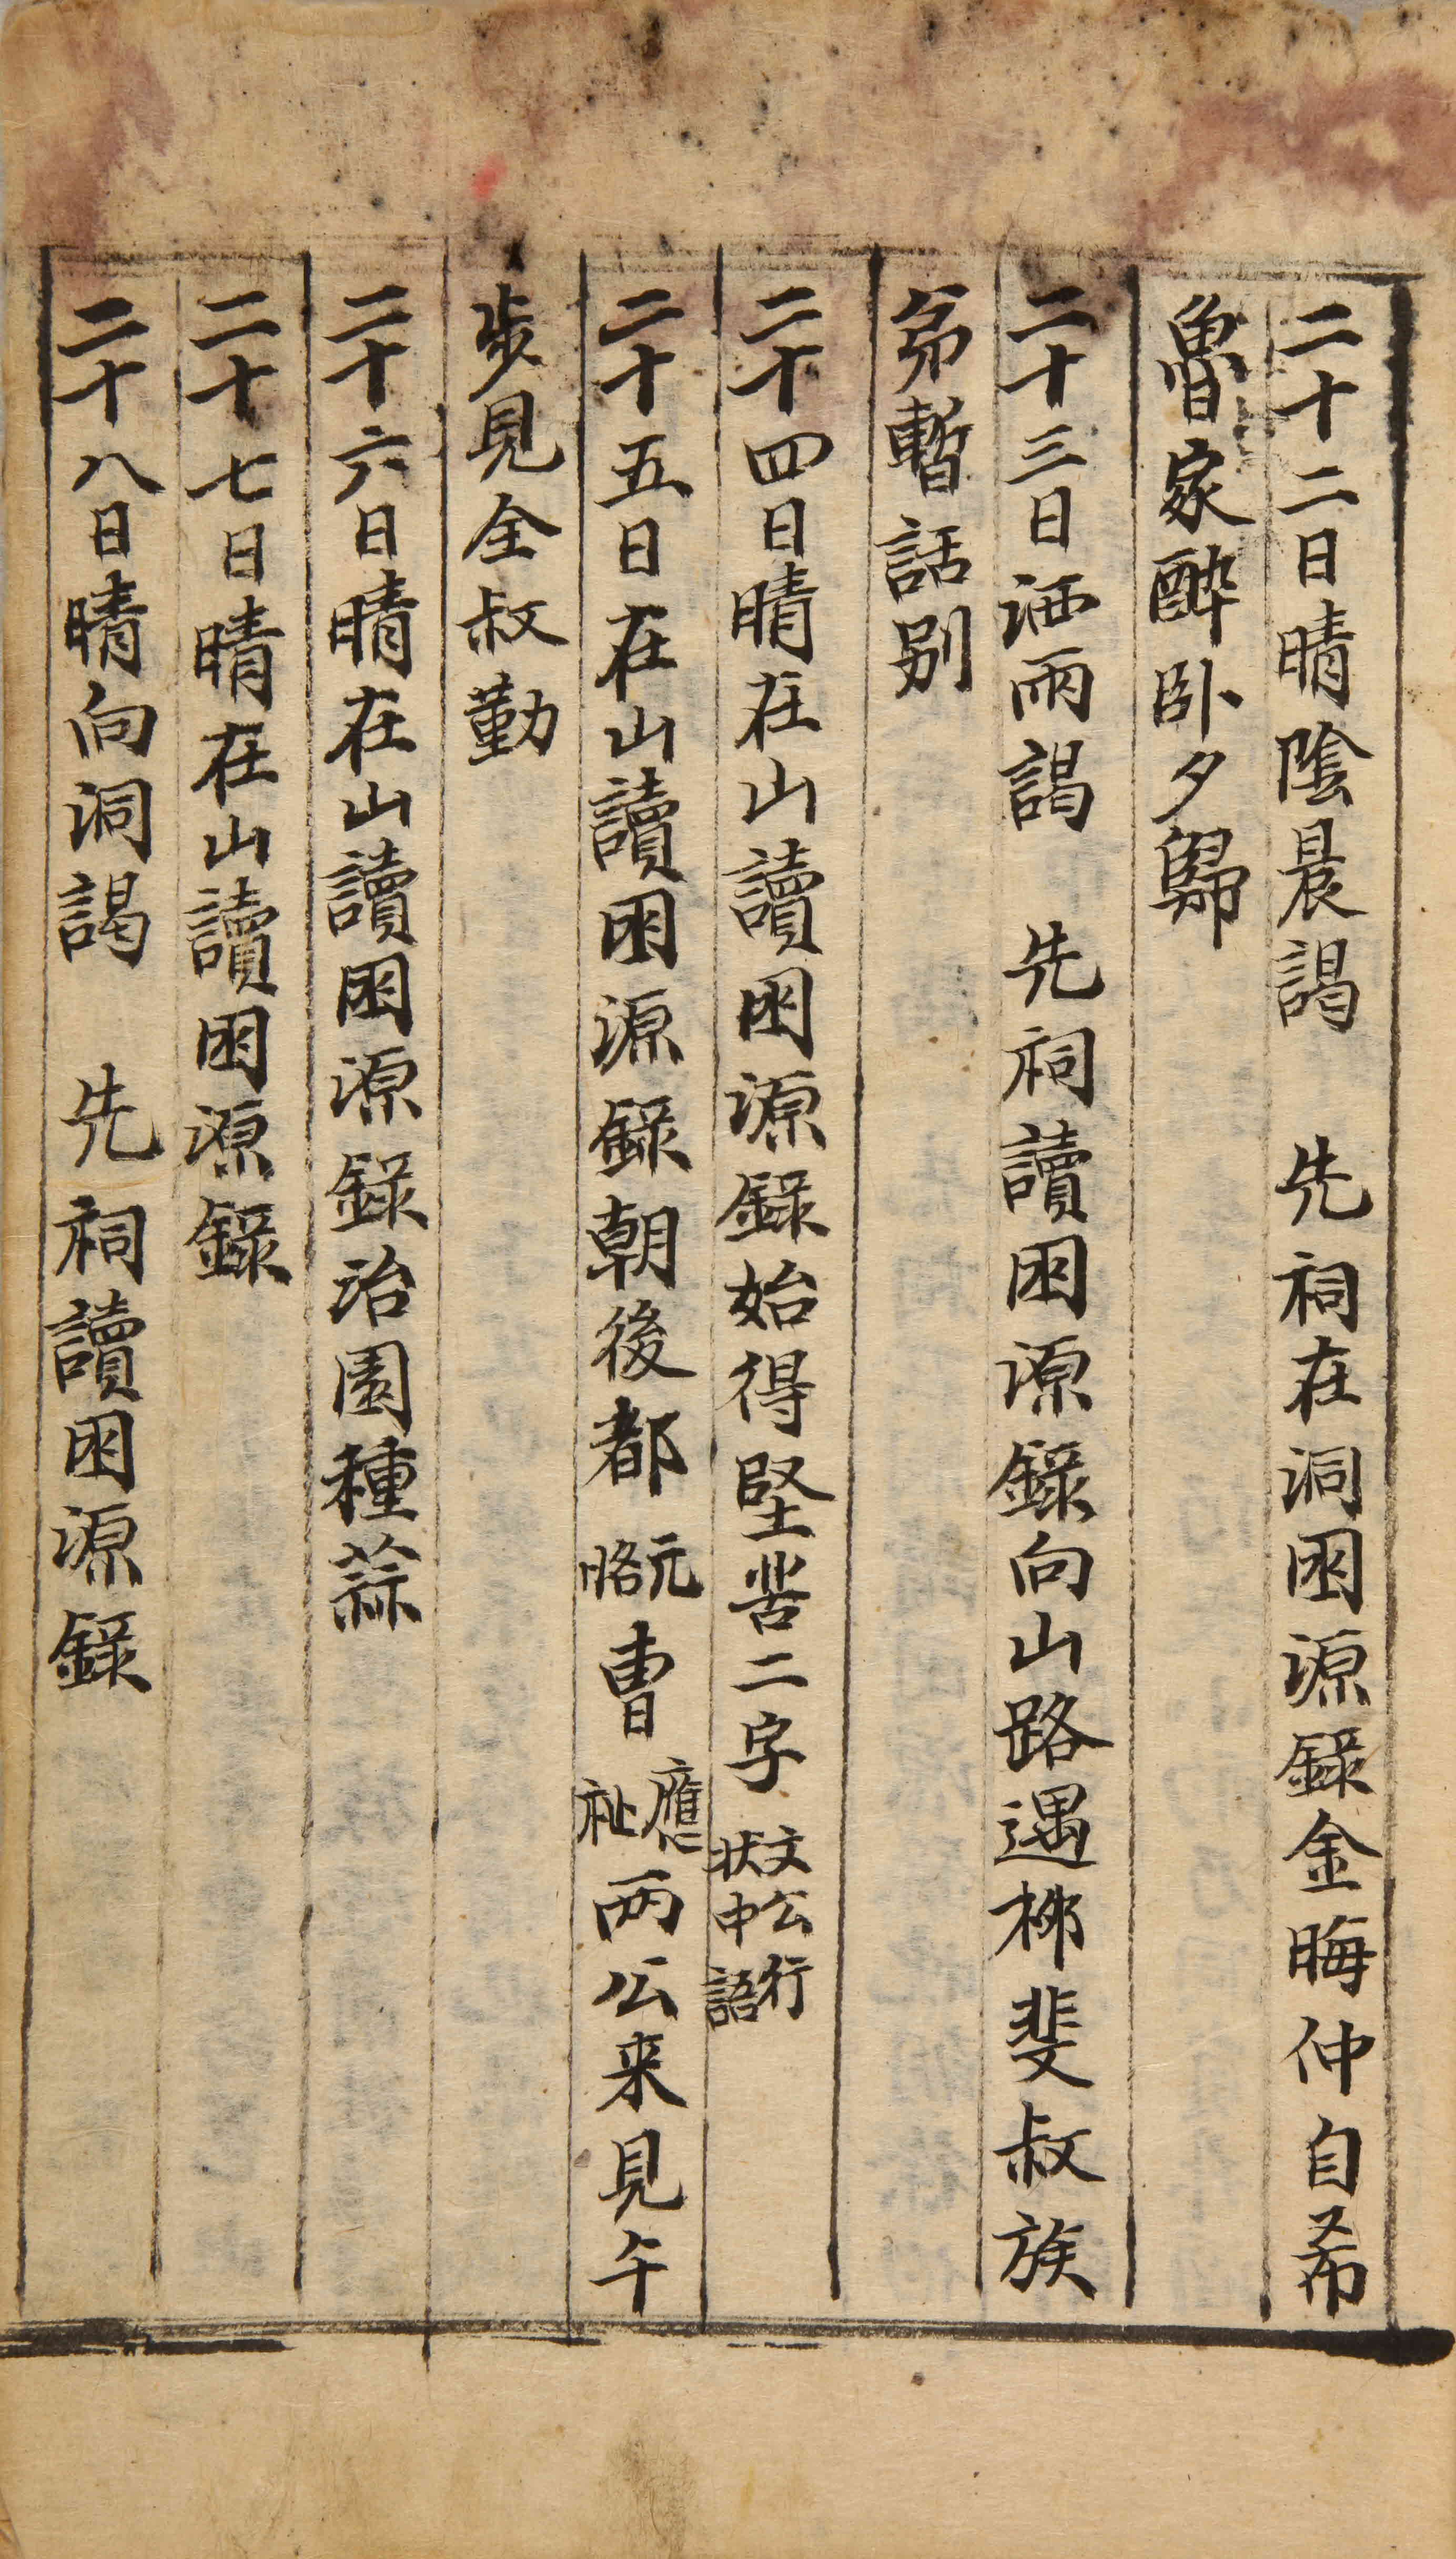 二十二日晴陰晨謁 先祠在洞困源錄金晦仲自希
魯家醉卧夕歸
二十三日洒雨謁 先祠讀困源錄向山路遇柳斐叔族
弟暫話别
二十四日晴在山讀困源錄始得堅苦二字文公行狀中語
二十五日在山讀困源錄朝後都元略曺應祉兩公来見午
步見全叔勤
二十六日晴在山讀困源錄治園種蒜
二十七日晴在山讀困源錄
二十八日晴向洞謁 先祠讀困源錄